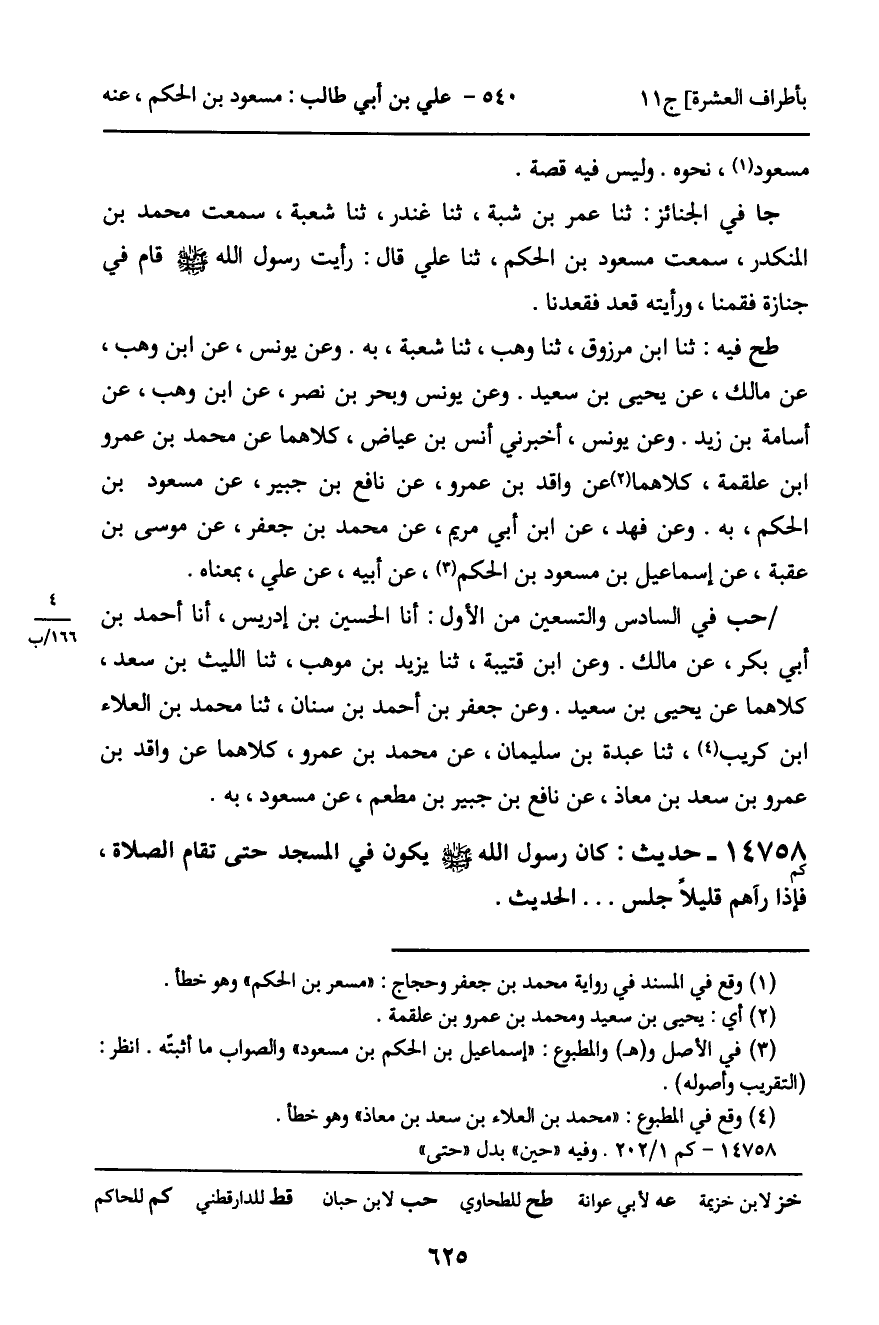 بأطراف العشرة] ج١١ ٥٤٠ - علي بن أبي طالب : مسعود بن الحكم ، عنه
مسعود(١) ، نحوه . وليس فيه قصة .
جا في الجنائز : ثنا عمر بن شبة ، ثنا غندر ، ثنا شعبة ، سمعت محمد بن
المنكدر ، سمعت مسعود بن الحكم ، ثنا علي قال : رأيت رسول الله ﷺ قام في
جنازة فقمنا ، ورأيته قعد فقعدنا .
طح فيه : ثنا ابن مرزوق ، ثنا وهب ، ثنا شعبة ، به . وعن يونس ، عن ابن وهب ،
عن مالك ، عن يحيى بن سعيد . وعن يونس وبحر بن نصر ، عن ابن وهب ، عن
أسامة بن زيد . وعن يونس ، أخبرني أنس بن عياض ، كلاهما عن محمد بن عمرو
ابن علقمة ، كلاهما(٢)عن واقد بن عمرو ، عن نافع بن جبير ، عن مسعود بن
الحكم ، به . وعن فهد ، عن ابن أبي مريم ، عن محمد بن جعفر ، عن موسى بن
عقبة ، عن إسماعيل بن مسعود بن الحكم(٣) ، عن أبيه ، عن علي ، بمعناه .
٤
١٦٦/ب
/حب في السادس والتسعين من الأول : أنا الحسين بن إدريس ، أنا أحمد بن
أبي بكر ، عن مالك . وعن ابن قتيبة ، ثنا يزيد بن موهب ، ثنا الليث بن سعد ،
كلاهما عن يحيى بن سعيد . وعن جعفر بن أحمد بن سنان ، ثنا محمد بن العلاء
ابن كريب(٤) ، ثنا عبدة بن سليمان ، عن محمد بن عمرو ، كلاهما عن واقد بن
عمرو بن سعد بن معاذ ، عن نافع بن جبير بن مطعم ، عن مسعود ، به .
١٤٧٥٨ - حديث : كان رسول الله ﷺ يكون في المسجد حتى تقام الصلاة ،
كم
فإذا رآهم قليلاً جلس ... الحديث .
(١) وقع في المسند في رواية محمد بن جعفر وحجاج : «مسعر بن الحكم» وهو خطأ .
(٢) أي : يحيى بن سعيد ومحمد بن عمرو بن علقمة .
(٣) في الأصل و(هـ) والمطبوع : «إسماعيل بن الحكم بن مسعود» والصواب ما أثبتّه . انظر :
(التقريب وأصوله) .
(٤) وقع في المطبوع : «محمد بن العلاء بن سعد بن معاذ» وهو خطأ .
١٤٧٥٨ - كم ٢٠٢/١ . وفيه «حين» بدل «حتى»
خز لابن خزيمة عه لأبي عوانة طح للطحاوي حب لابن حبان قط للدارقطني كم للحاكم
٦٢٥